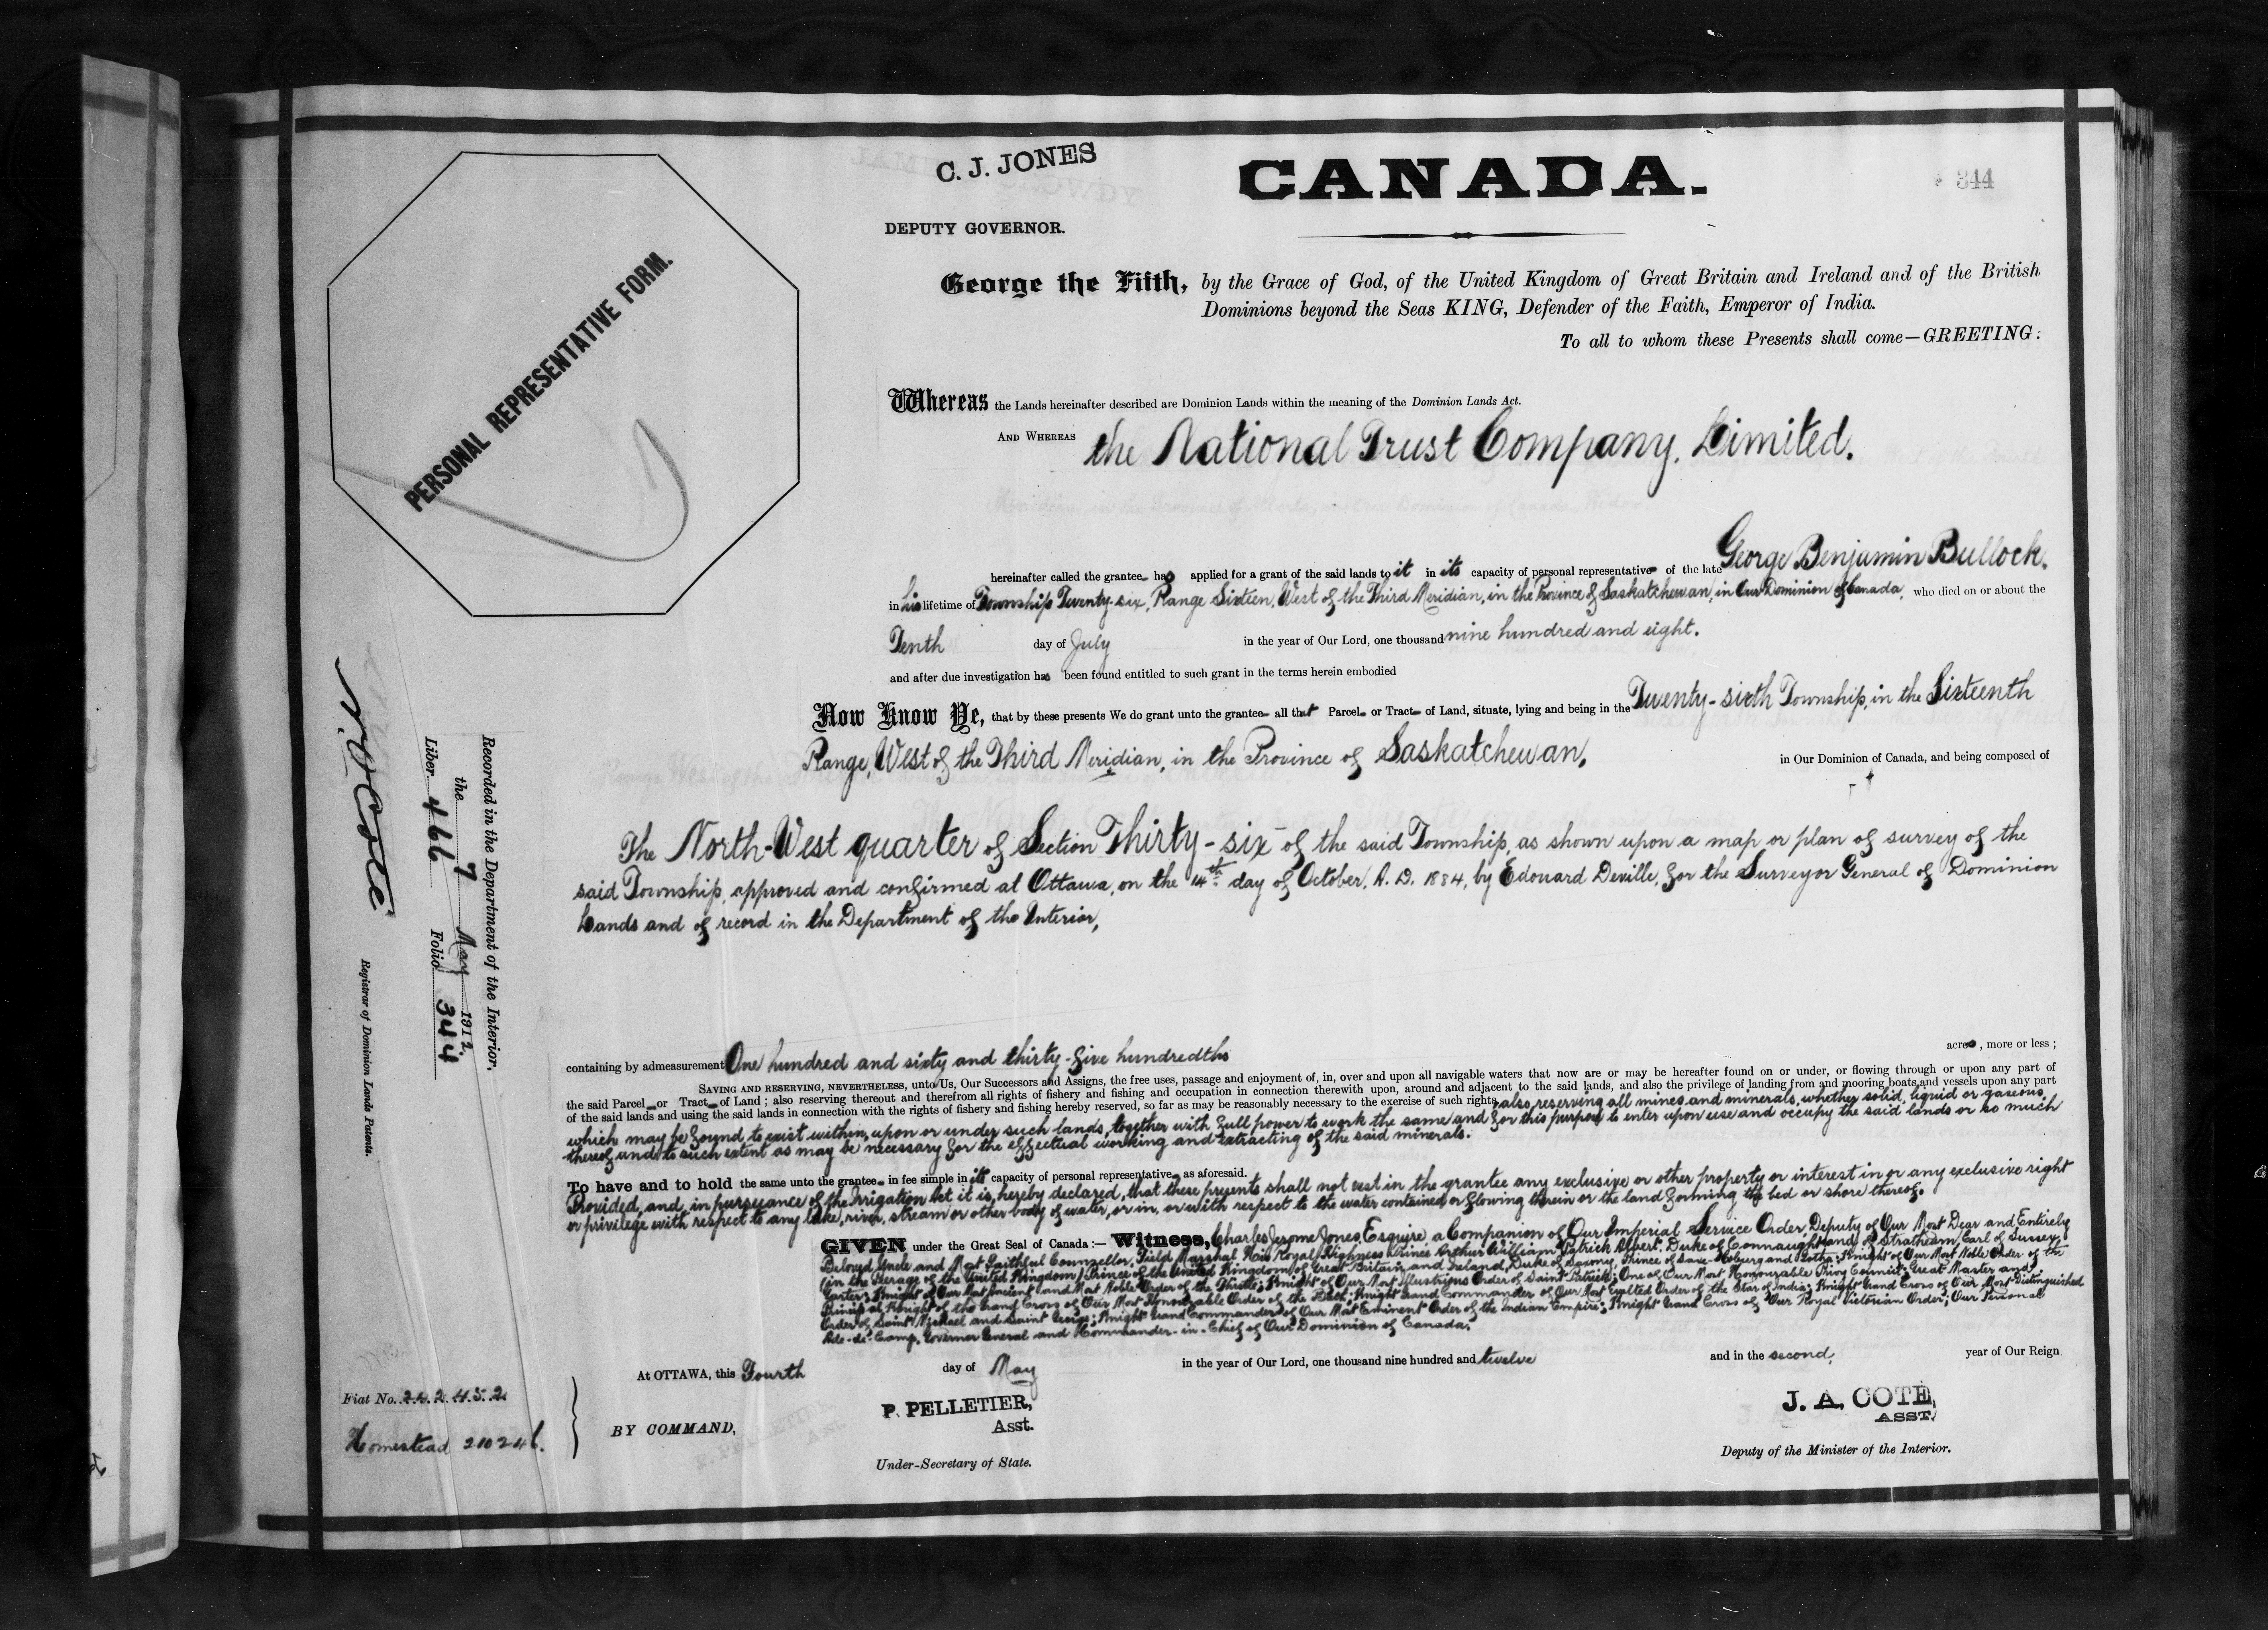 C. J. JONES
CANADA.
344
DEPUTY GOVERNOR.
PERSONAL REPRESENTATIVE FORM.
George the Fifth, by the Grace of God, of the United Kingdom of Great Britain and Ireland and of the British
Dominions beyond the Seas KING, Defender of the Faith, Emperor of India.
To all to whom these Presents shall come—GREETING:
Whereas the Lands hereinafter described are Dominion Lands within the meaning of the Dominion Lands Act.
AND WHEREAS the National Trust Company, Limited.
hereinafter called the grantee has applied for a grant of the said lands to it in its capacity of personal representative of the late George Benjamin Bullock.
in his lifetime of Township Twenty-six, Range Sixteen, West of the Third Meridian, in the Province of Saskatchewan, in Our Dominion of Canada, who died on or about the
Tenth day of July in the year of Our Lord, one thousand nine hundred and eight.
and after due investigation has been found entitled to such grant in the terms herein embodied
Now Know Ye, that by these presents We do grant unto the grantee all that Parcel or Tract of Land, situate, lying and being in the Twenty-sixth Township, in the Sixteenth
Range, West of the Third Meridian, in the Province of Saskatchewan, in Our Dominion of Canada, and being composed of
The North-West quarter of Section Thirty-six of the said Township, as shown upon a map or plan of survey of the
said Township, approved and confirmed at Ottawa, on the 14th day of October, A. D. 1884, by Edouard Deville, for the Surveyor General of Dominion
Lands and of record in the Department of the Interior,
containing by admeasurement One hundred and sixty and thirty-five hundredths acres, more or less;
SAVING AND RESERVING, NEVERTHELESS, unto Us, Our Successors and Assigns, the free uses, passage and enjoyment of, in, over and upon all navigable waters that now are or may be hereafter found on or under, or flowing through or upon any part of
the said Parcel or Tract of Land; also reserving thereout and therefrom all rights of fishery and fishing and occupation in connection therewith upon, around and adjacent to the said lands, and also the privilege of landing from and mooring boats and vessels upon any part
of the said lands and using the said lands in connection with the rights of fishery and fishing hereby reserved, so far as may be reasonably necessary to the exercise of such rights, also reserving all mines and minerals, whether solid, liquid or gaseous,
which may be found to exist within, upon or under such lands, together with full power to work the same and for this purpose to enter upon use and occupy the said lands or so much
thereof and to such extent as may be necessary for the effectual working and extracting of the said minerals.
To have and to hold the same unto the grantee in fee simple in its capacity of personal representative as aforesaid.
Provided, and in pursuance of the Irrigation Act it is hereby declared, that these presents shall not vest in the grantee any exclusive or other property or interest in or any exclusive right
or privilege with respect to any lake, river, stream or other body of water, or in, or with respect to the water contained or flowing therein or the land forming the bed or shore thereof.
GIVEN under the Great Seal of Canada:— Witness, Charles Jerome Jones, Esquire, a Companion of Our Imperial Service Order, Deputy of Our Most Dear and Entirely
Beloved Uncle and Most Faithful Counsellor, Field Marshal His Royal Highness Prince Arthur William Patrick Albert, Duke of Connaught and of Strathearn, Earl of Sussex,
(in the Peerage of the United Kingdom) Prince of the United Kingdom of Great Britain and Ireland, Duke of Saxony, Prince of Saxe-Coburg and Gotha; Knight of Our Most Noble Order of the
Garter; Knight of Our Most Ancient and Most Noble Order of the Thistle; Knight of Our Most Illustrious Order of Saint Patrick; One of Our Most Honourable Privy Council; Great Master and
Principal Knight of the Grand Cross of Our Most Honourable Order of the Bath; Knight Grand Commander of Our Most Exalted Order of the Star of India; Knight Grand Cross of Our Most Distinguished
Order of Saint Michael and Saint George; Knight Grand Commander of Our Most Eminent Order of the Indian Empire; Knight Grand Cross of Our Royal Victorian Order; Our Personal
Aide-de-Camp, Governor General and Commander-in-Chief of Our Dominion of Canada.
At OTTAWA, this Fourth day of May in the year of Our Lord, one thousand nine hundred and twelve and in the second, year of Our Reign
BY COMMAND,
P. PELLETIER,
Asst.
Under-Secretary of State.
J. A. COTE,
ASST.
Deputy of the Minister of the Interior.
Fiat No. 242452
Homestead 210246.
Recorded in the Department of the Interior,
the 7 May 1912,
Liber 466 Folio 344
N. O. Cote
Registrar of Dominion Lands Patents.